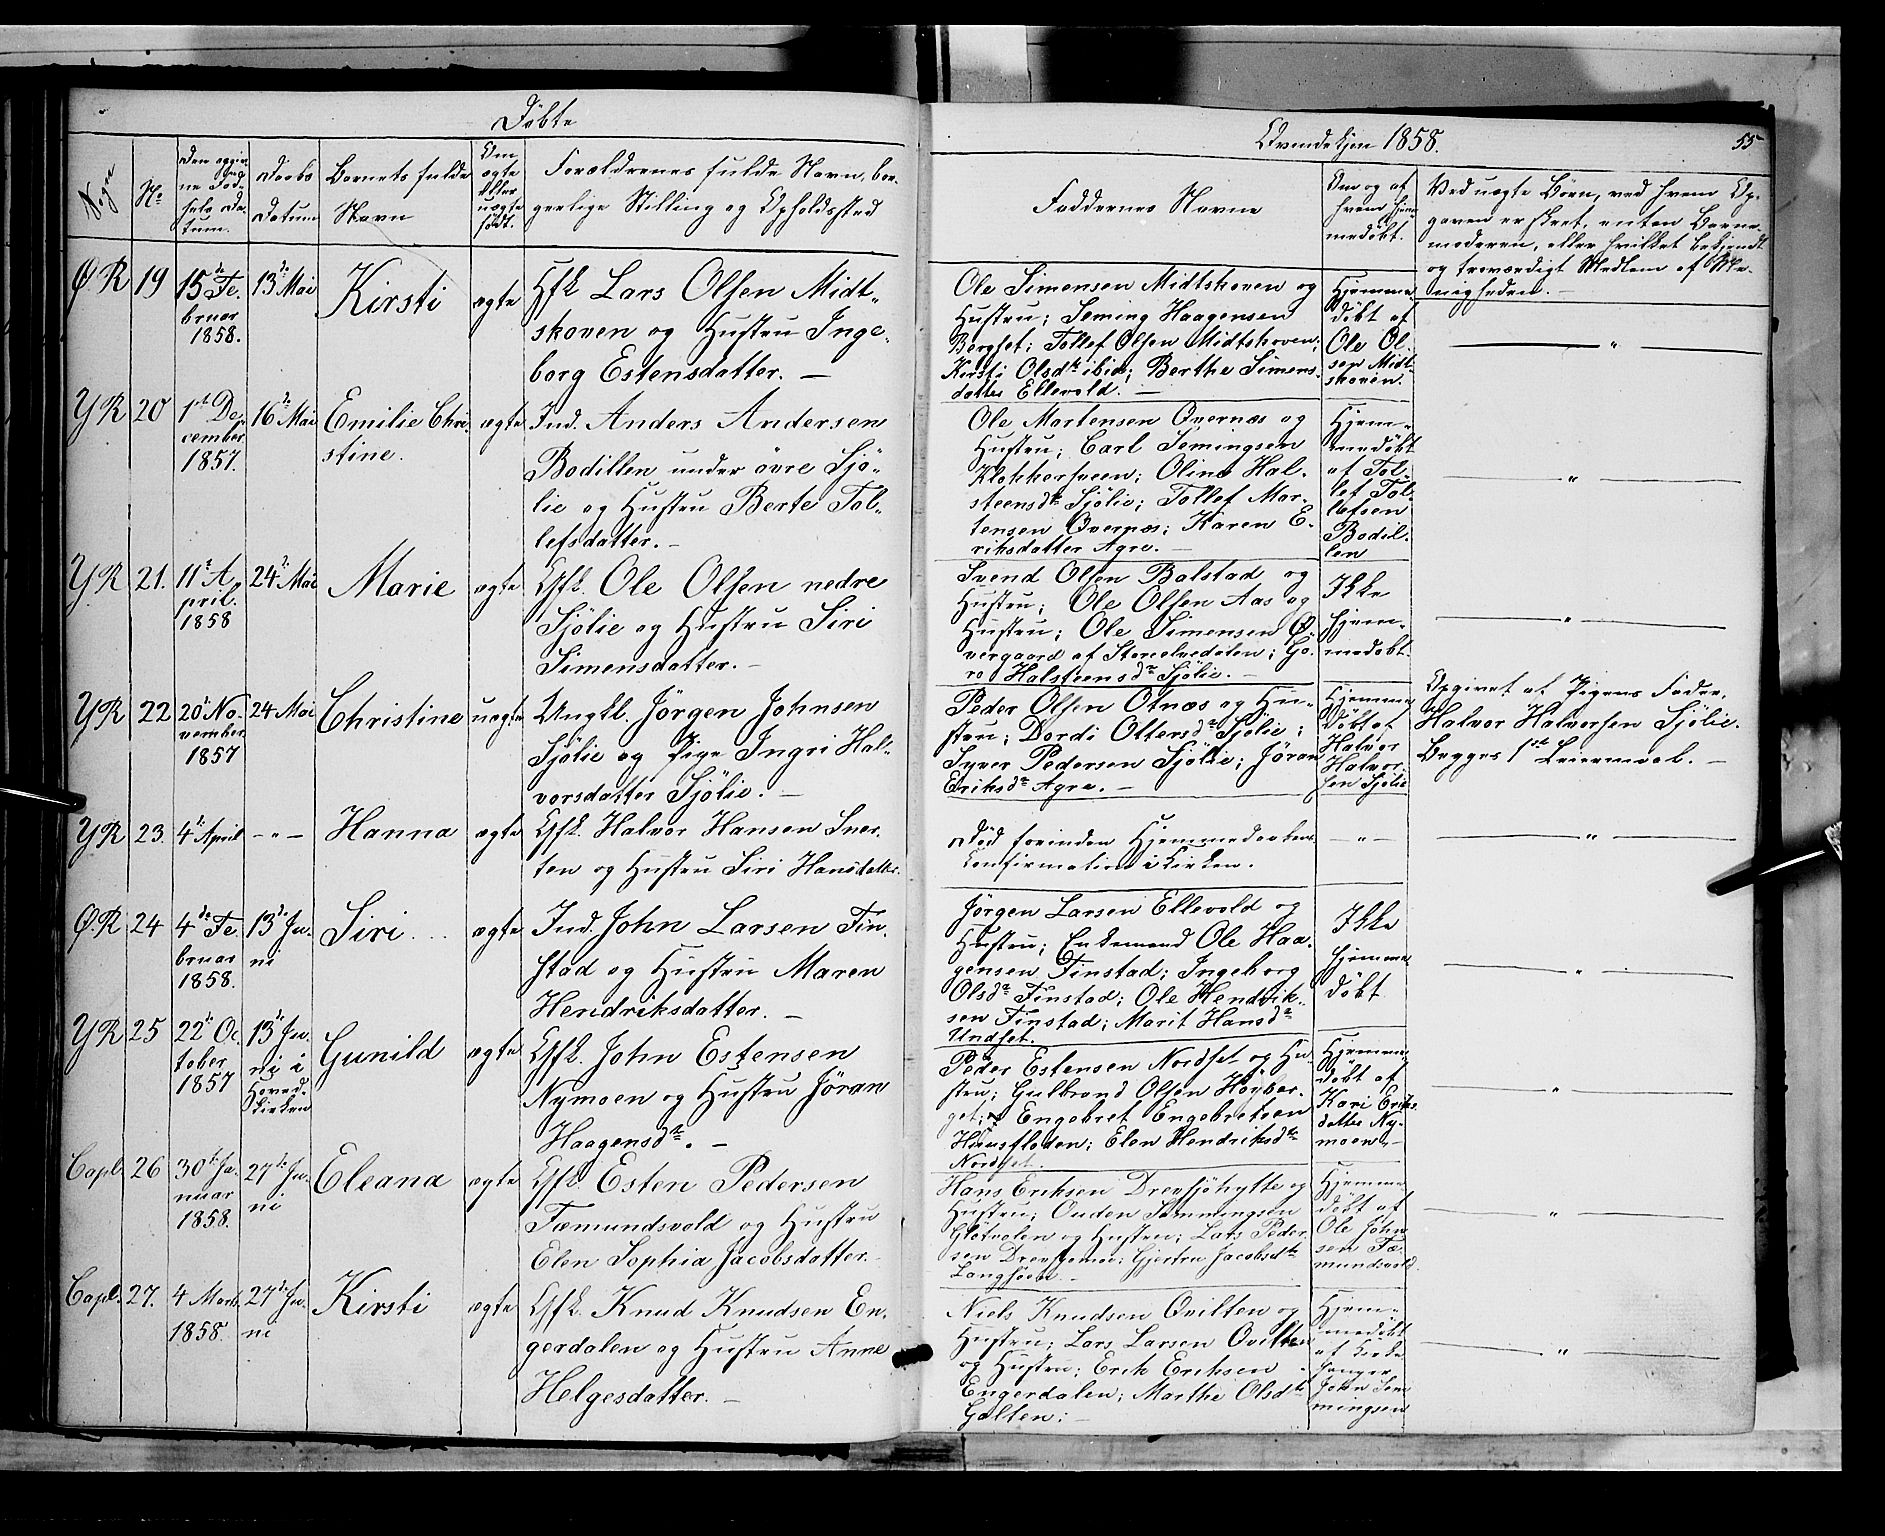 Döbte
Qvindekjön 1858.
55
Sogne
No
Den opgiv-
ne Föd-
sels Da-
tum.
Daabs
Datum
Barnets fulde
Navn
Om
ægte
eller
uægte
födt.
Forældrenes fulde Navn, bor-
gerlige Stilling og Opholdssted
Faddernes Navne
Om og af
hvem hjem-
medöbt.
Ved uægte Börn, ved hvem Op-
gaven er skeet, enten Barne-
moderen, eller hvilket bekjendt
og troværdigt Medlem af Me-
nigheden.
Ø R
19
15de Fe-
bruar
1858.
13de Mai
Kirsti
ægte
Gfk Lars Olsen Midt-
skoven og Hustru Inge-
borg Estensdatter. —
Ole Simensen Midtskoven og
Hustru; Seming Haagensen
Bergset; Tollef Olsen Midtskoven;
Kirsti Olsdtr ibid; Berthe Simens-
datter Ellevold. —
Hjemme-
döbt af
Ole Ol-
sen Midt-
skoven.
Y R
20
1ste De-
cember
1857.
16de Mai
Emilie Chri-
stine.
ægte
Ind. Anders Andersen
Bodillen under övre Sjö-
lie og Hustru Berte Tol-
lefsdatter. —
Ole Mortensen Övernæs og
Hustru; Carl Semingsen
Klokkersveen; Oline Hal-
steensdtr Sjölie; Tollef Mor-
tensen Övernæs; Karen E-
riksdatter Agre. —
Hjem-
medöbt
af Tol-
lef Tol-
lefsen
Bodil-
len
Y R
21.
11te A-
pril.
1858
24de Mai
Marie
ægte
Gfk. Ole Olsen nedre
Sjölie og Hustru Siri
Simensdatter. —
Svend Olsen Bolstad og
Hustru; Ole Olsen Aas og
Hustru; Ole Simensen Ö-
vergaard af Storelvedalen; Gö-
ro Halsteensdtr Sjölie. —
Ikke
hjem-
medöbt.
Y R
22
20de No-
vember
1857
24 Mai
Christine
uægte
Ungkl. Jörgen Johnsen
Sjölie og Pige Ingri Hal-
vorsdatter Sjölie. —
Peder Olsen Otnæs og Hu-
stru; Dordi Ottersdtr Sjölie;
Syver Pedersen Sjölie; Jöran
Eriksdtr Agre. —
Hjemme-
döbt af
Halvor
Halvor-
sen Sjölie
Opgivet af Pigens Fader,
Halvor Halvorsen Sjölie.
Begges 1ste Leiermaal. —
Y R
23.
4de April
— " —
Hanna
ægte
Gfk. Halvor Hansen Sner-
ten og Hustru Siri Hansdatter.
Död forinden Hjemmedaabens
Confirmation i Kirken.
— " —
Ø. R
24
4de Fe-
bruar
1858.
13de Ju-
ni
Siri...
ægte
Ind. John Larsen Fin-
stad og Hustru Maren
Hendriksdatter. —
Jörgen Larsen Ellevold og
Hustru; Enkemand Ole Haa-
gensen Finstad; Ingeborg
Olsdtr Finstad; Ole Hendrik-
sen Finstad; Marit Hansdtr
Undset.
Ikke
hjemme-
döbt
Y R
25
22de Oc-
tober
1857
13de Ju-
ni i
Hoved-
kirken
Gunild
ægte
Gfk. John Estensen
Nymoen og Hustru Jöran
Haagensdtr. —
Peder Estensen Nordset og Hu-
stru; Gulbrand Olsen Höyber-
get; Engebret Engebretsen
Elen Hendriksdtr
Nordset.
Hjemme-
döbt af
Kari Eriks-
datter Ny-
moen. —
Capl.
26
30te Ja-
nuar
1858.
27de Ju-
ni
Eleana
ægte
Gfk. Esten Pedersen
Fæmundsvold og Hustru
Elen Sophia Jacobsdatter.
Hans Eriksen Drevsjöhytte og
Hustru; Ouden Semmingsen
Glötvolen og Hustru; Lars Peder-
sen Drevsjömoe; Gjertru Jacobsdtr
Langsöen —
Hjemme-
döbt af
Ole John-
sen Fæ-
mundsvold.
Capl.
27.
4 Marts
1858.
27de Ju-
ni
Kirsti
ægte
Gfk. Knud Knudsen En-
gerdalen og Hustru Anne
Helgesdatter. —
Niels Knudsen Qvilten og
Hustru; Lars Larsen Qvilten
og Hustru; Erik Eriksen
Engerdalen; Marthe Olsdtr
Galten; —
Hjem-
medöbt
af Kirke-
sanger
John Sem-
mingsen